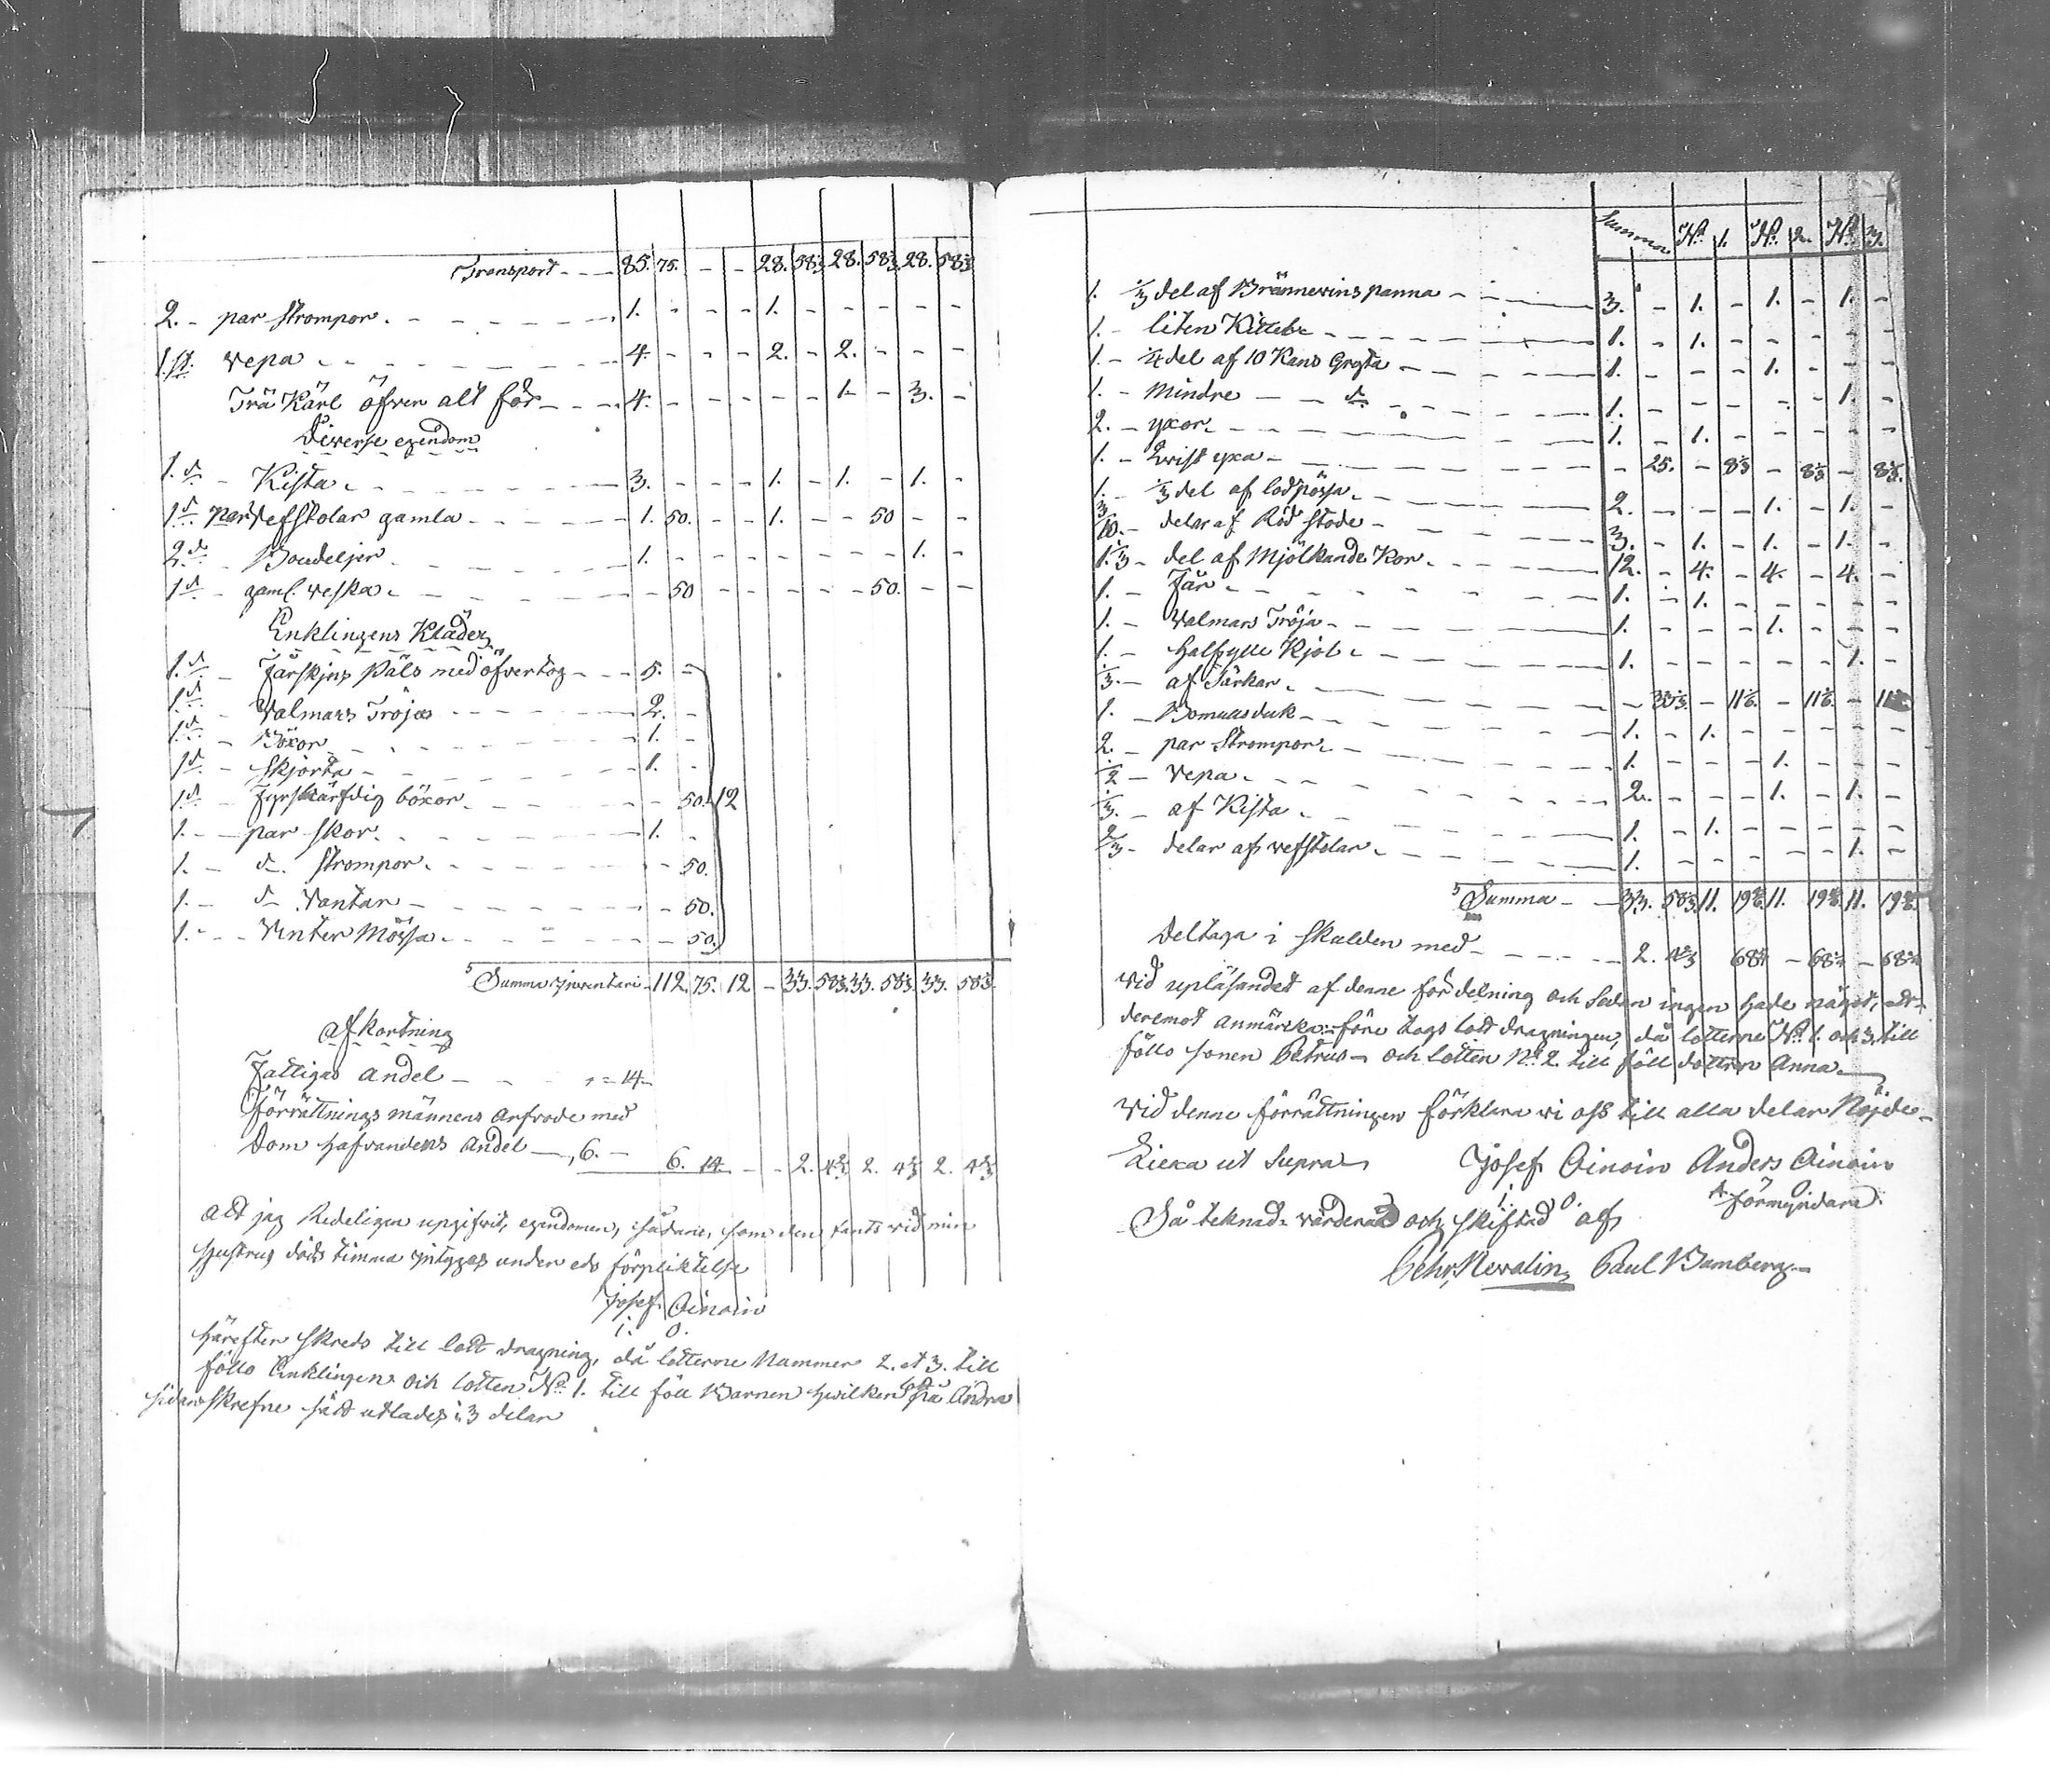 Transport - - - 85. 75. - - 28. 58⅓ 28. 58⅓ 28. 58⅓
2. - par Strompor. - - - - - 1. - - - 1. - - - - -
1 st. vepa - - - - - 4. - - - 2. - 2. - - -
Trä Kärl öfver alt för - - - 4. - - - - - 1. - 3. -
Diverse egendom
1. d. - Kista. - - - - - 3. - - - 1. - 1. - 1. -
1 d. par Vefstolar gamla - - - - 1. 50. - - 1. - - 50 - -
2 d. - Boudeljer - - - - 1. - - - - - - - 1. -
1 d. - gaml. veska - - - - - 50 - - - - - 50. - -
Enklingens Kläder
1. d. - Fårskjns Päls med öfvertog - - 5. -
1. d. - Valmars Tröja - - - - 2. -
1. d. - Böxor - - - - 1. -
1 d. - Skjorta - - - - 1. -
1. d. - böxor. - - - - 50. 12
1. - par Skor. - - - - 1. -
1. - d. Strompor. - - - - 50.
1. - d. Vantar - - - - 50.
1. - - Vinter Mössa. - - - - 50.
Summa Inventari - 112. 75. 12 - 33. 58⅓. 33. 58⅓. 33. 58⅓.
afkortning
Fattigas andel - - - 14 -
Förrättnings männens arfvode med
Dom hafvandens andel - 6. - 6. 14 - - 2. 4⅔ 2. 4⅔ 2. 4⅔
Alt jag Redeligen upgifvit, egendomen, sådane, som den fants vid min
Hustrus döds timma intygas under eds förpliktelse
Josef Oinoin
i. O.
Härefter Skreds till lott dragning, då lotterne Nummer 2. et 3. till
föllo Enklingen och lotten No 1. till föll Barnen hvilken på Andra
sidan skrefne sätt utlades i 3 delar
Summa No 1. No 2. No 3.
1. ⅓ del af Brännevins panna - - 3. - 1. - 1. - 1. -
1. - liten Kittel - - - - 1. - 1. - - - - -
1. - ½ del af 10 Kans Gryta - - - - 1. - - - 1. - - -
1. - Mindre - - d. - - - - 1. - - - - - 1. -
2. - yxor. - - - - 1. - 1. - - - - -
1. - qvist yxa - - - - - 25. - 8⅓ - 8⅓ - 8⅓.
1. - ⅓ del af lodbössa. - - 2. - - - 1. - 1. -
3/10. - delar af Röd Stode - - - 3. - 1. - 1. - 1. -
1. ⅓ - del af Mjölkande Kor. - - - 12. - 4. - 4. - 4. -
1. - Får - - - - 1. - 1. - - - - -
1. - Valmars Tröja - - - - 1. - - - 1. - - -
1. - Halfylle Kjol - - - - 1. - - - - - 1. -
⅓. - af Särkar. - - - - 33⅓. - 11⅙. - 11⅙. - 11
1. - Bomullsduk - - - - 1. - 1. - - - - -
2. - par Strompor. - - - - 1. - - - 1. - - -
½ - Vepa. - - - - 2. - - - 1. - 1. -
⅓. - af Kista. - - - - 1. - 1. - - - - -
⅔ - delar af vefstolar. - - - 1. - - - - - 1. -
Summa - - 33. 58⅓. 11. 19 11. 19 11. 19
Deltaga i Skulden med - - - - 2. 4⅔ 68 - 68 - 68
Vid upläsandet af denne fördelning och Sedan ingen hade något, at
deremot anmärka: före togs lott dragningen, då lotterne No 1. och 3. till
föllo sonen Petrus - och lotten No 2. till föll dottren Anna.
Vid denne förrättningen förklara vi oss till alla delar Nöjde -
Lieka ut Supra Josef Oinoin Anders Oinoin
i. O. förmyndare
Så teknad värderad och skiftad af
Pehr Nevalin Paul Bamberg